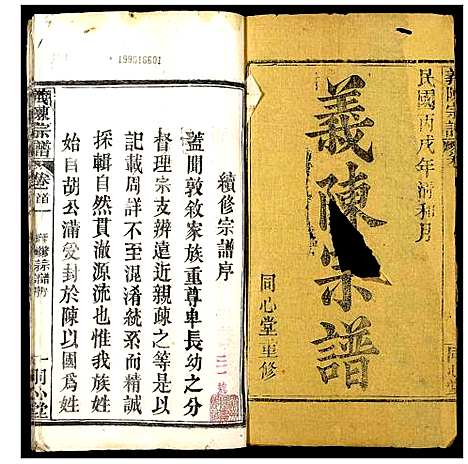 義陳宗譜
民國丙戌年清和月
義陳宗譜
同心堂重修
同心堂
199616601
續修宗譜序
蓋聞敦敘家族重尊卑長幼之分
督理宗支辨遠近親疎之等是以
記載周詳不至混淆統系而精誠
採輯自然貫澈源流也惟我族
始自胡公滿受封於陳以國為姓
義陳宗譜
卷首
續修宗譜序
一同心堂